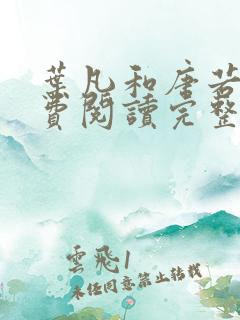 葉凡和唐若
費閱讀完整
雲飛1
未經同意禁止轉載